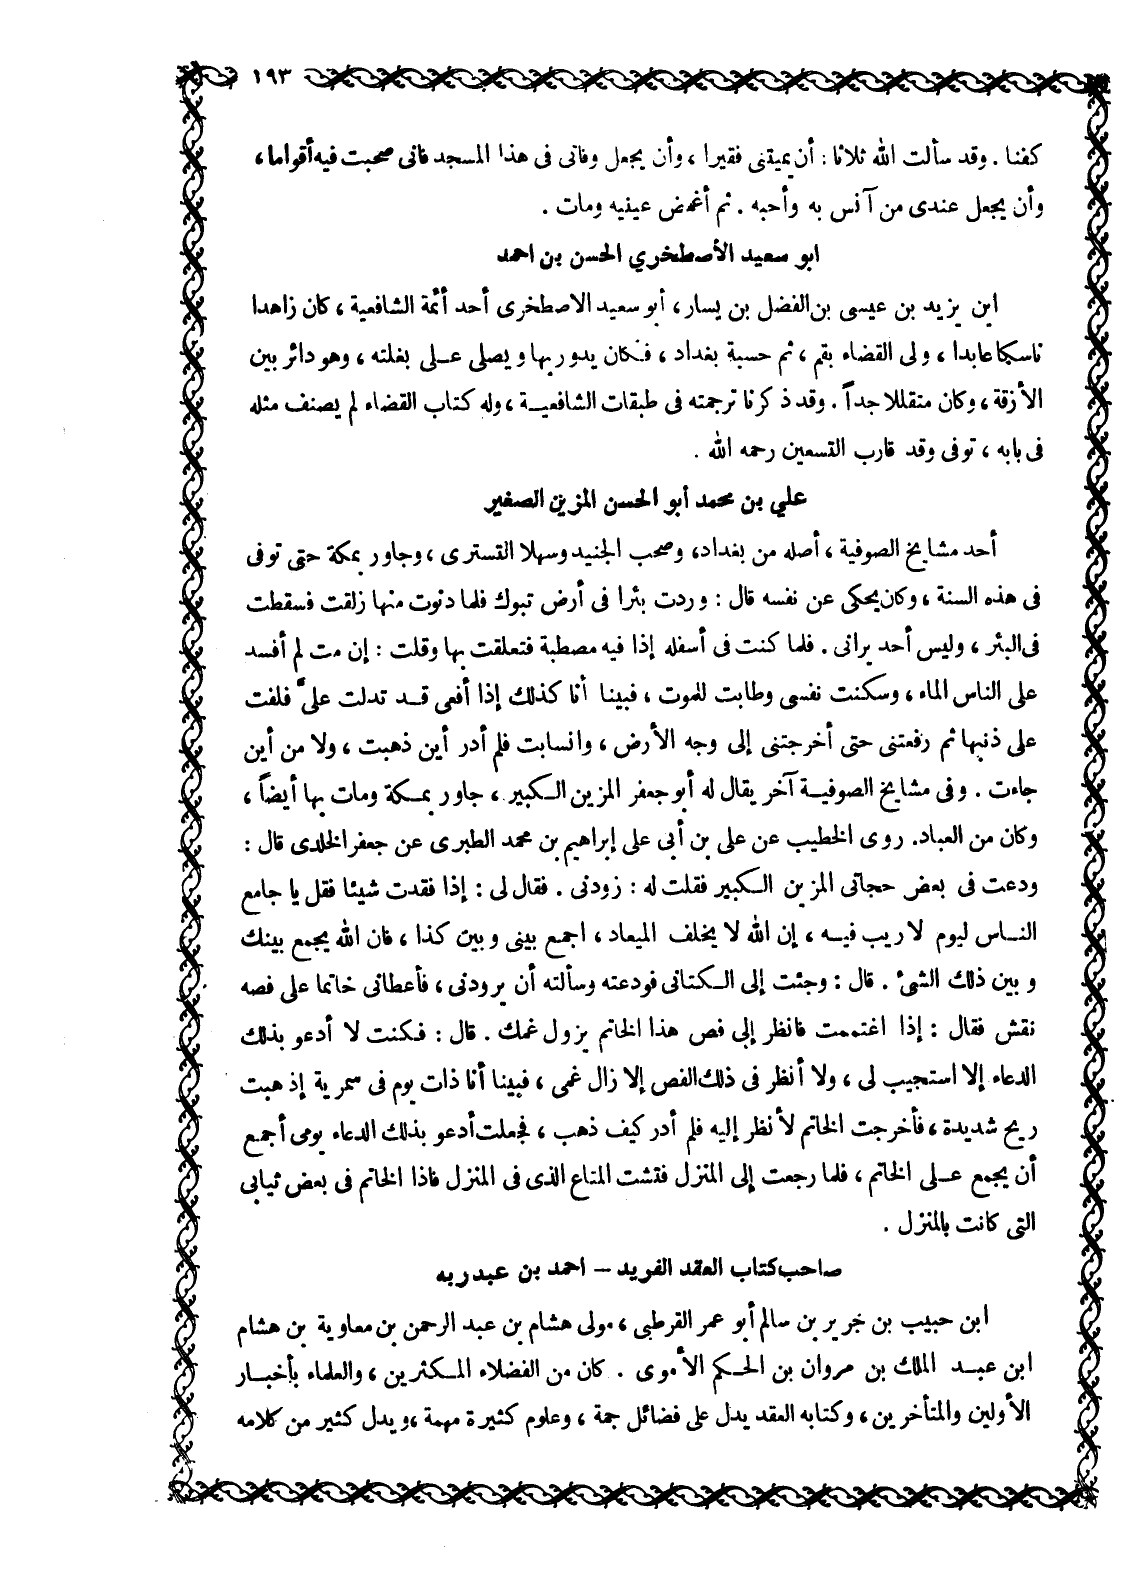 ١٩٣
كفنا . وقد سألت الله ثلاثا : أن يميتنى فقيرا ، وأن يجعل وفاتى فى هذا المسجد فانى صحبت فيه أقواما ،
وأن يجعل عندى من آنس به وأحبه . ثم أغمض عينيه ومات .
ابو سعيد الأصطخري الحسن بن احمد
ابن يزيد بن عيسى بن الفضل بن يسار ، أبو سعيد الاصطخرى أحد أئمة الشافعية ، كان زاهدا
ناسكا عابدا ، ولى القضاء بقم ، ثم حسبة بغداد ، فكان يدور بها ويصلى على بغلته ، وهو دائر بين
الأزقة ، وكان متقللا جداً . وقد ذكرنا ترجمته فى طبقات الشافعية ، وله كتاب القضاء لم يصنف مثله
فى بابه ، توفى وقد قارب التسعين رحمه الله .
علي بن محمد أبو الحسن المزين الصغير
أحد مشايخ الصوفية ، أصله من بغداد ، وصحب الجنيد وسهلا التسترى ، وجاور بمكة حتى توفى
فى هذه السنة ، وكان يحكى عن نفسه قال : وردت بئرا فى أرض تبوك فلما دنوت منها زلقت فسقطت
فى البئر ، وليس أحد يرانى . فلما كنت فى أسفله إذا فيه مصطبة فتعلقت بها وقلت : إن مت لم أفسد
على الناس الماء ، وسكنت نفسى وطابت للموت ، فبينا أنا كذلك إذا أفعى قد تدلت علىّ فلفت
على ذنبها ثم رفعتنى حتى أخرجتنى إلى وجه الأرض ، وانسابت فلم أدر أين ذهبت ، ولا من أين
جاءت . وفى مشايخ الصوفية آخر يقال له أبو جعفر المزين الكبير ، جاور بمكة ومات بها أيضاً ،
وكان من العباد. روى الخطيب عن على بن أبى على إبراهيم بن محمد الطبرى عن جعفر الخلدى قال :
ودعت فى بعض حجاتى المزين الكبير فقلت له : زودنى . فقال لى : إذا فقدت شيئا فقل يا جامع
الناس ليوم لا ريب فيه ، إن الله لا يخلف الميعاد ، اجمع بينى وبين كذا ، فان الله يجمع بينك
وبين ذلك الشئ . قال : وجئت إلى الكتانى فودعته وسألته أن يرودنى ، فأعطانى خاتما على فصه
نقش فقال : إذا اغتممت فانظر إلى فص هذا الخاتم يزول غمك . قال : فكنت لا أدعو بذلك
الدعاء إلا استجيب لى ، ولا أنظر فى ذلك الفص إلا زال غمى ، فبينا أنا ذات يوم فى سمرية إذ هبت
ريح شديدة ، فأخرجت الخاتم لأنظر إليه فلم أدر كيف ذهب ، فجعلت أدعو بذلك الدعاء يومى أجمع
أن يجمع على الخاتم ، فلما رجعت إلى المنزل فتشت المتاع الذى فى المنزل فاذا الخاتم فى بعض ثيابى
التى كانت بالمنزل .
صاحب كتاب العقد الفريد – احمد بن عبد ربه
ابن حبيب بن خرير بن سالم أبو عمر القرطبى ، مولى هشام بن عبد الرحمن بن معاوية بن هشام
ابن عبد الملك بن مروان بن الحكم الأموى . كان من الفضلاء المكثرين ، والعلماء بأخبار
الأولين والمتأخرين ، وكتابه العقد يدل على فضائل جمة ، وعلوم كثيرة مهمة ، ويدل كثير من كلامه